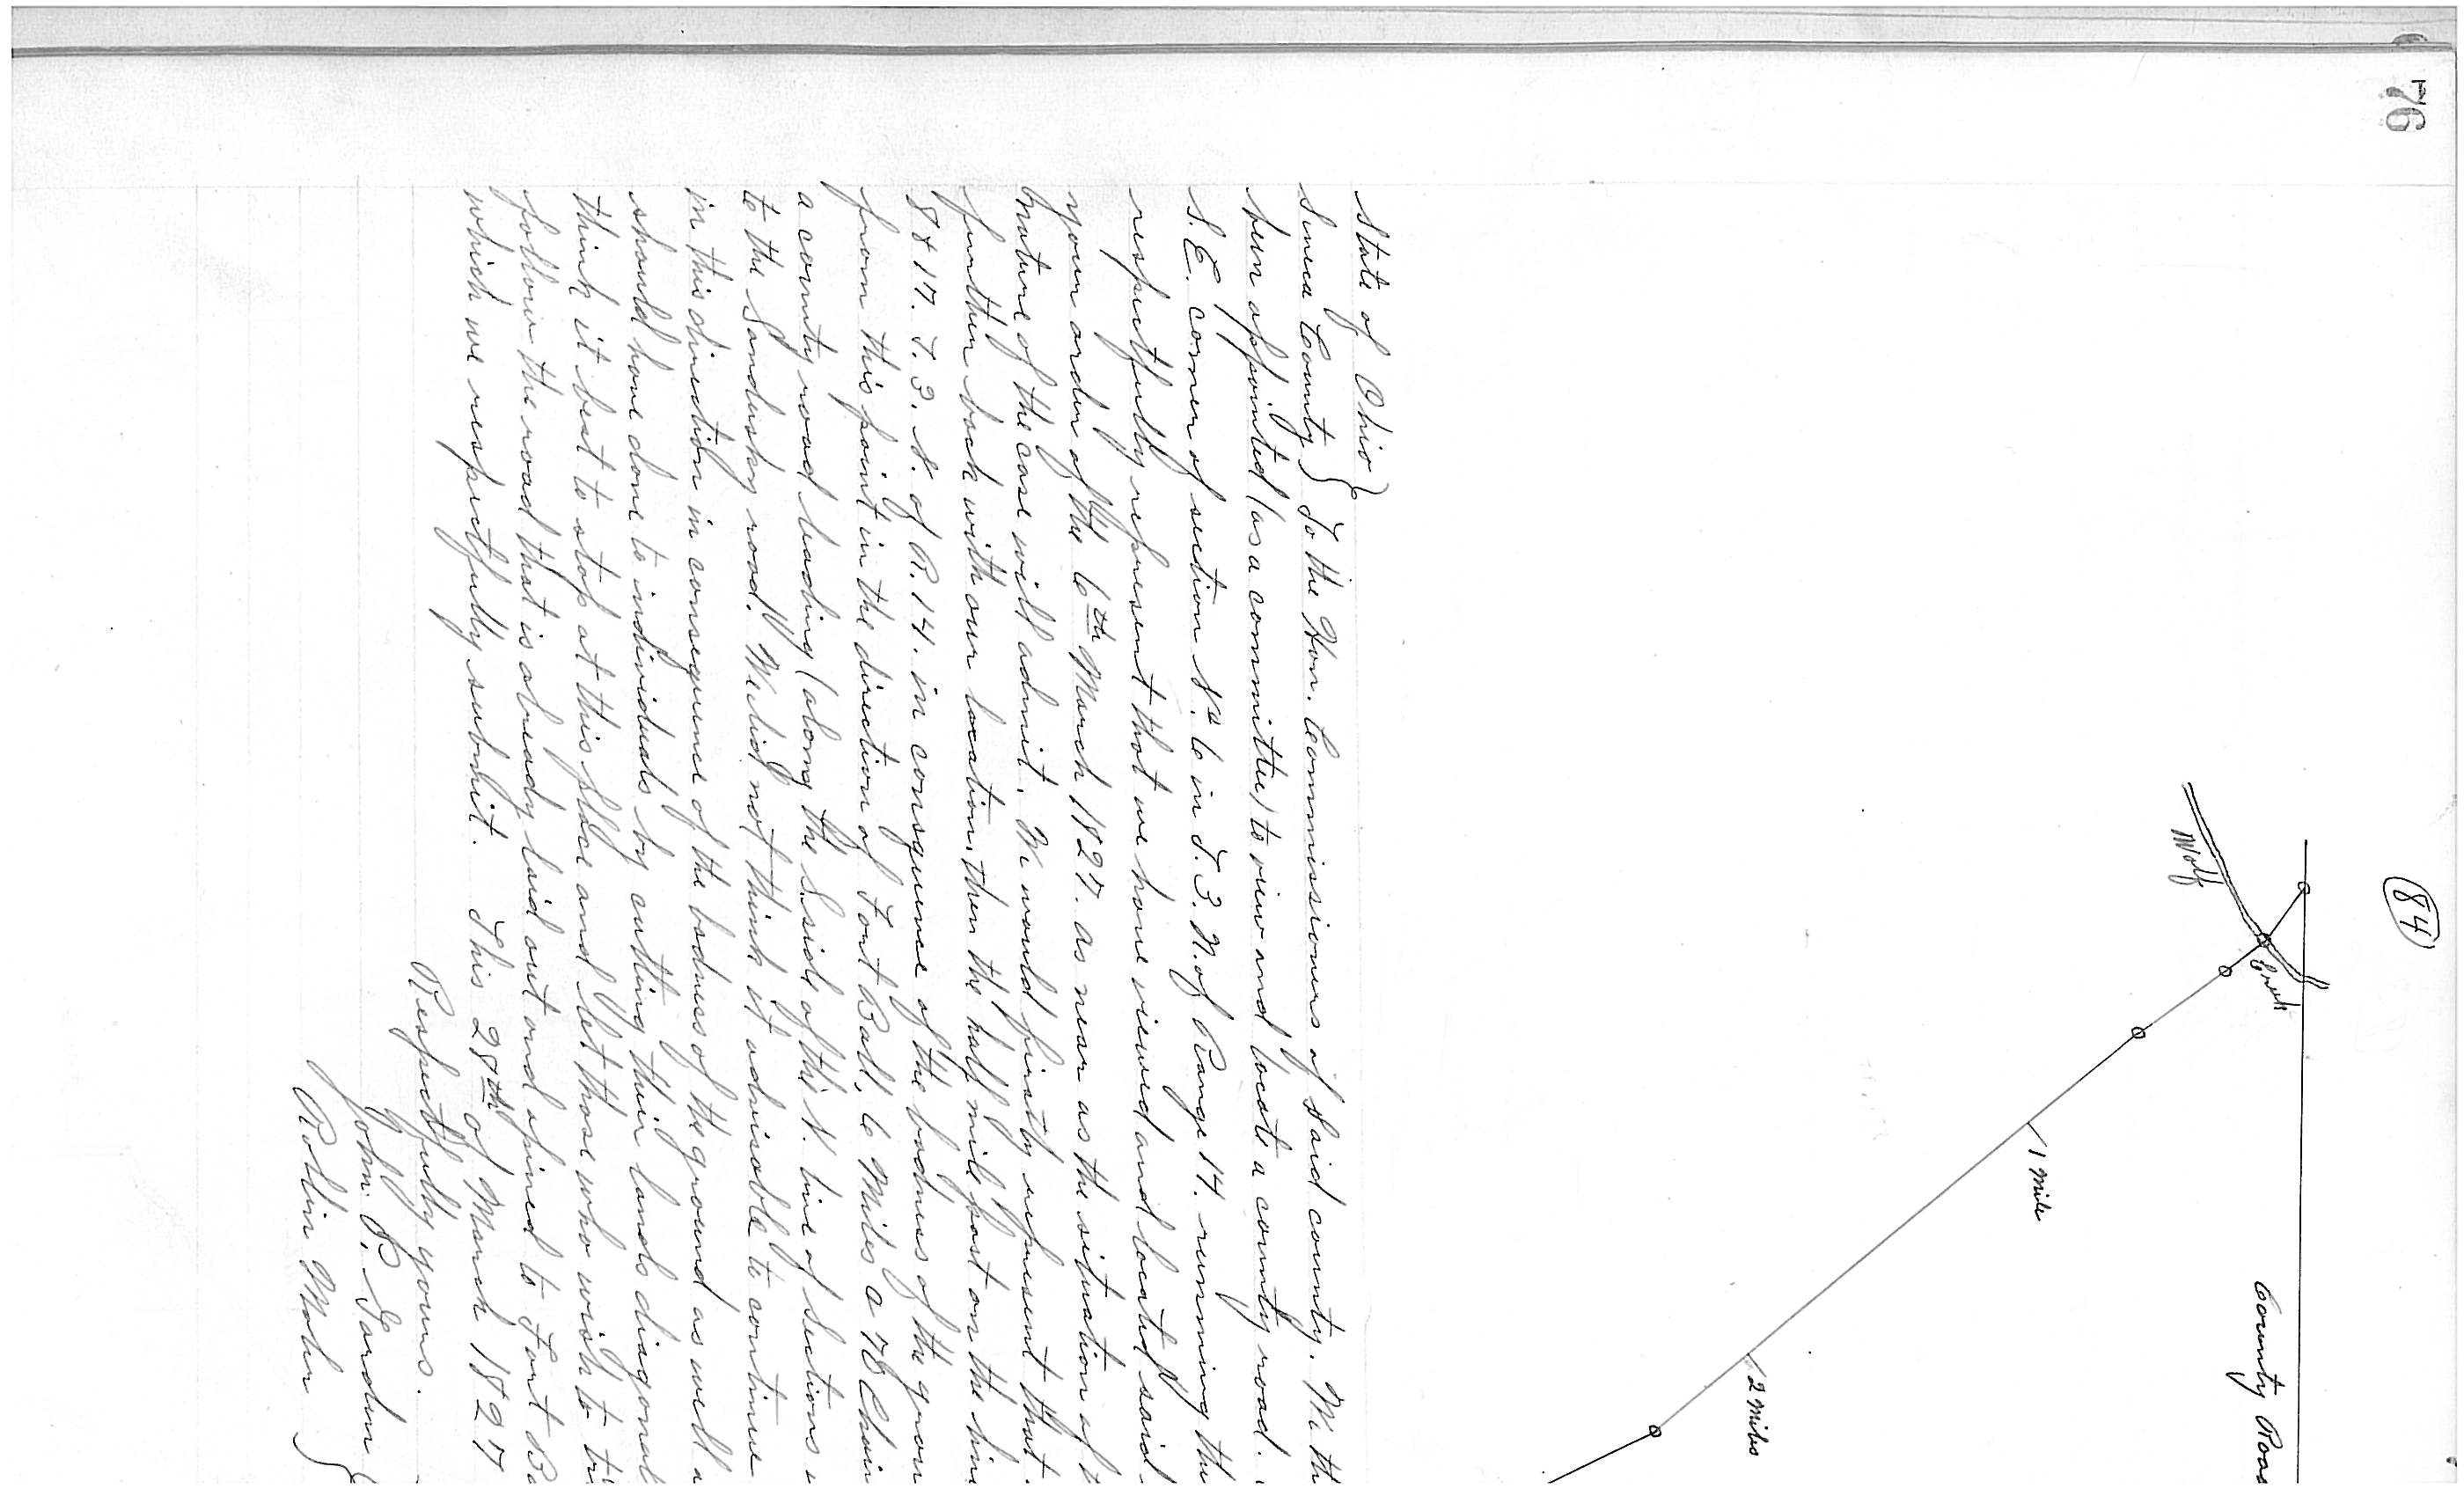 76
84
Wolf
Creek
1 Mile
2 Miles
County Roa
State of Ohio }
Seneca County } To the Hon. Commissioners of Said county. We th
been appointed (as a committee) to view and locate a county road.
S.E. corner of section No 6 in T. 3. N. of Range 14. running the
respectfully represent that we have viewed and located said
your order of the 6th March 1827. as near as the situation of t
nature of the case will admit. We would firstly represent that
further back with our location, then the half mile post on the line
8 & 17. T. 3. N. of R. 14. in consequence of the badness of the groun
from this point in the direction of Fort Ball, 6 Miles & 76 Chain
a county road leading (along the S. side of the N. line of Sections
to the Sandusky road. We did not think it advisable to continue
in this direction in consequence of the badness of the ground as well a
should have done to individuals by cutting their lands diagonal
think it best to stop at this place and let those who wish to tr
follow the road that is already laid out and opened to Fort Ba
which we respectfully submit. This 28th of March 1827
Respectfully yours.
John P. Gordon
Rollin Moler }